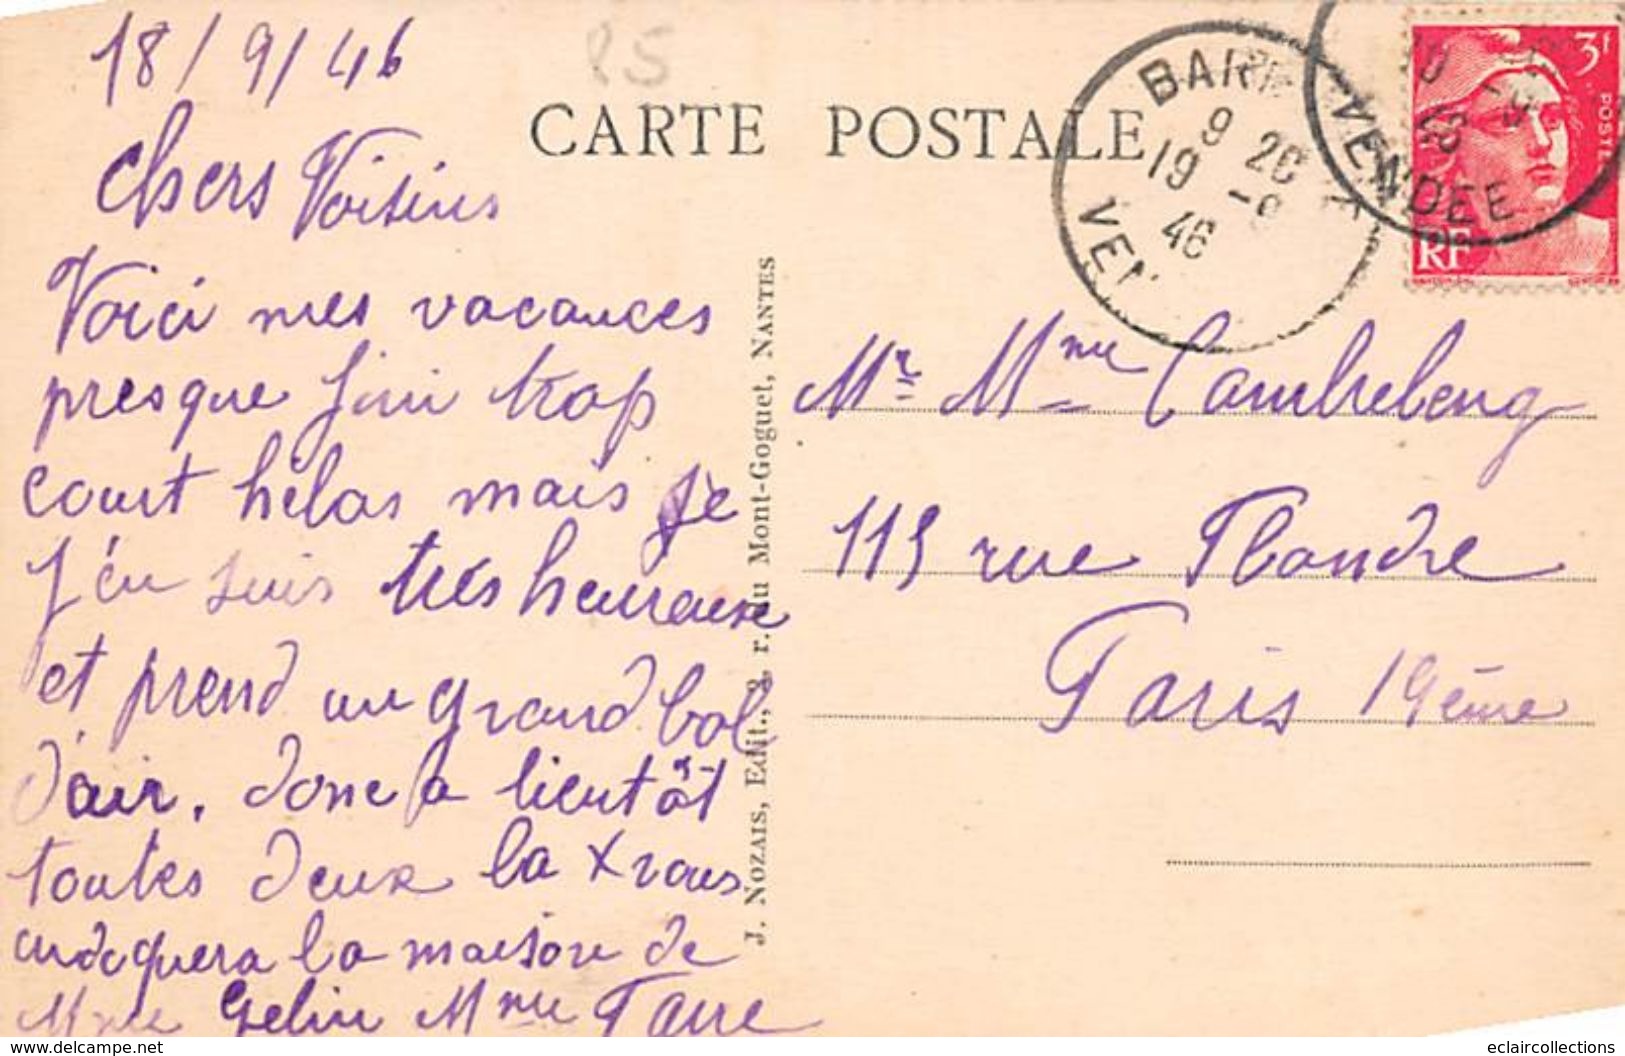 18/9/46
CARTE POSTALE
chers Voisins
Voici mes vacances
presque fini trop
court hélas mais je
j'en suis très heureuse
et prend un grand bol
d'air. donc a bientôt
toutes deux la x vous
indiquera la maison de
Mme Gelin Mme Faure
J. NOZAIS, Edit., r. du Mont-Goguet, NANTES
BAR
9 20
19 -9
46
VEN
10 -9
VENDEE
3f
POSTES
RF
Mr Mme Cambreleng
115 rue Flandre
Paris 19ème
www.delcampe.net
eclaircollections